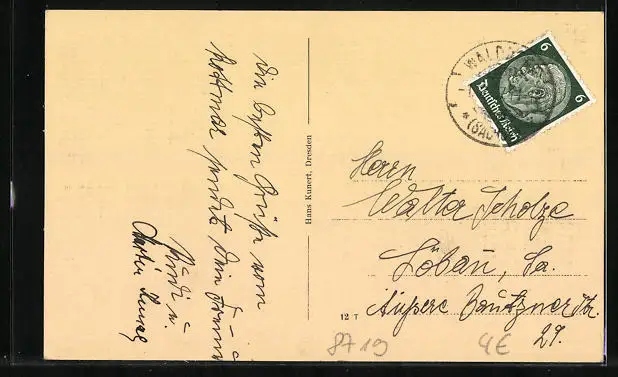 Die besten Grüße vom
Kottmar sendet Dein Freund
Hans Kunert, Dresden
12 T
6
6
Deutsches Reich
Herrn
Walter Scholze
Löbau, Sa.
Äußere Bautznerstr.
29.
8719
4€